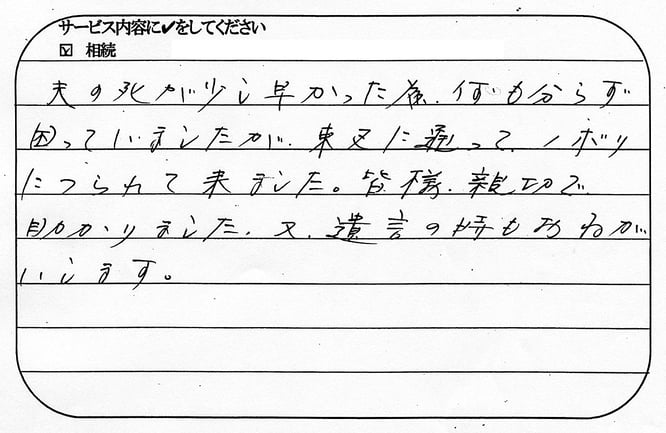 サービス内容に✔をしてください
☑ 相続
夫の死が少し早かった為、何も分からず
困っていましたが、東又に通って、ノボリ
につられて来ました。皆様、親切で
助かりました、又、遺言の時もおねが
いします。